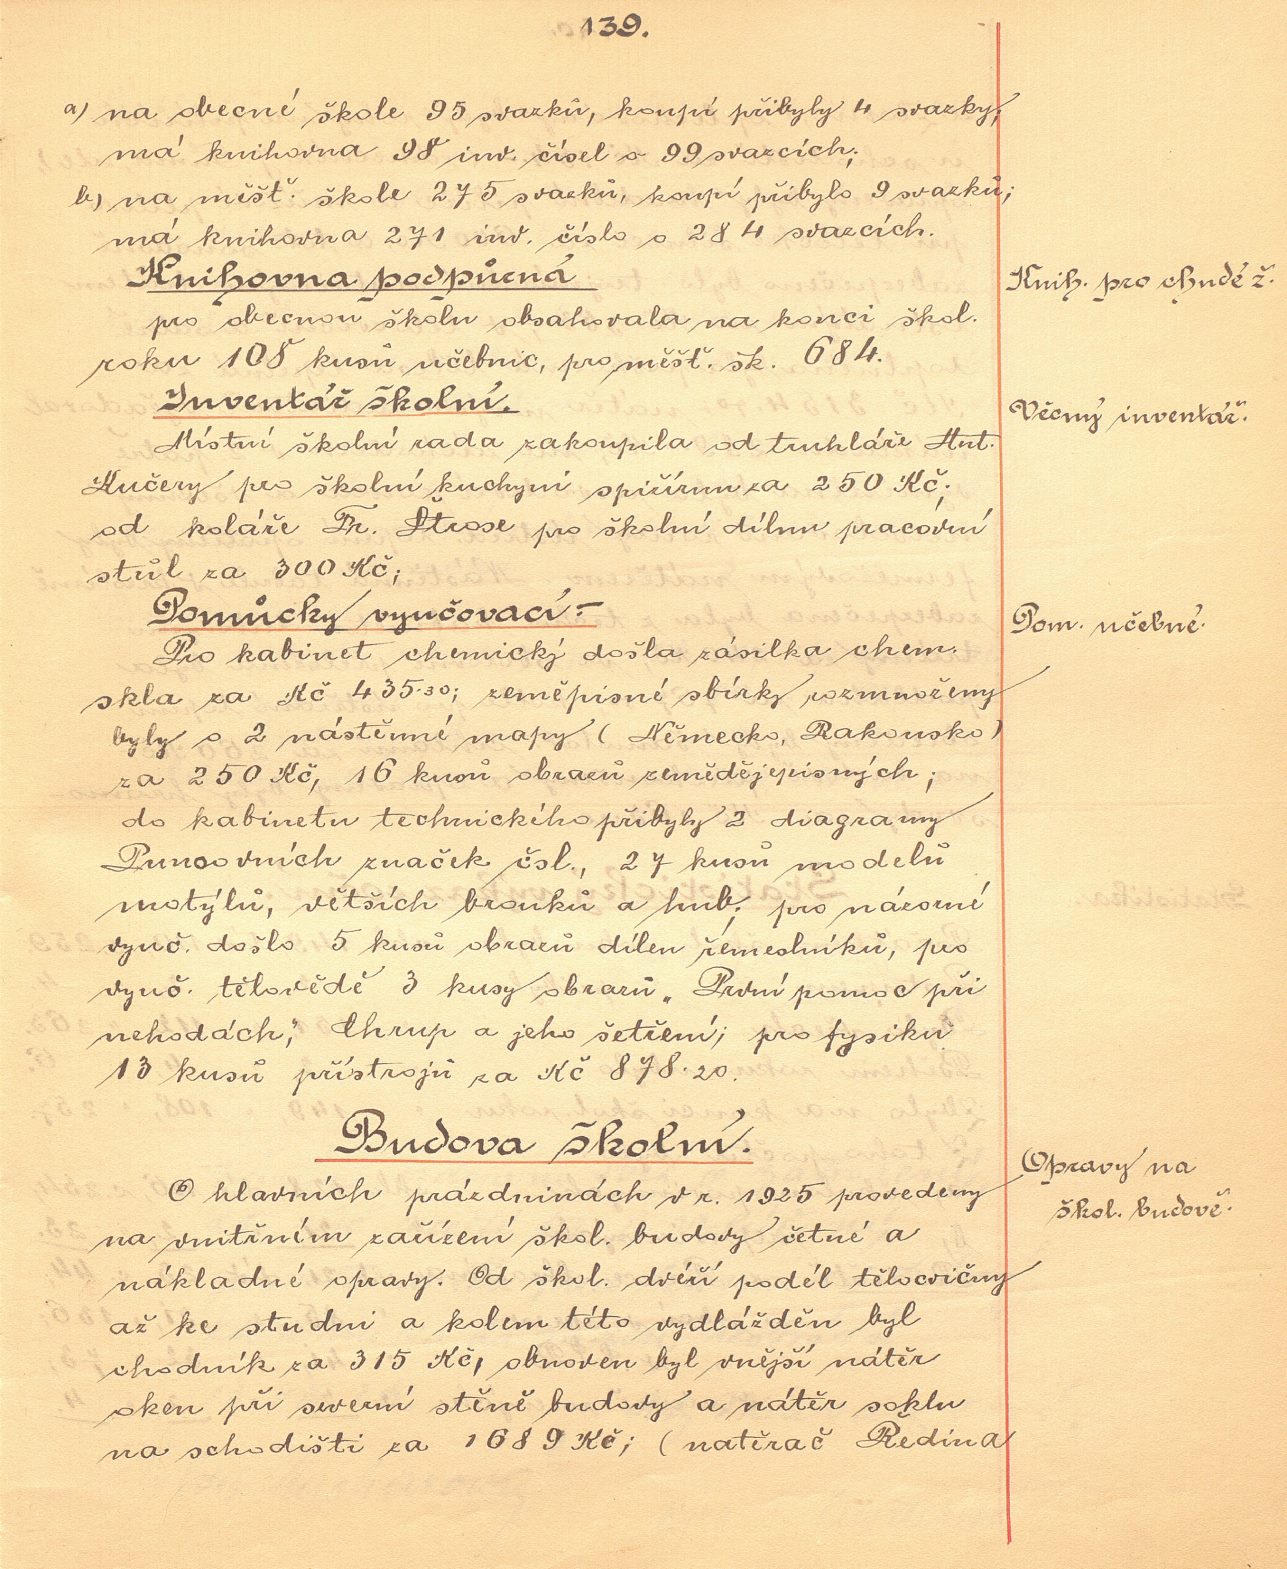 139.
a) na obecné škole 95 svazků, koupí přibyly 4 svazky;
má knihovna 98 inv. čísel o 99 svazcích;
b) na měšť. škole 275 svazků, koupí přibylo 9 svazků;
má knihovna 271 inv. číslo o 284 svazcích.
Knihovna podpůrná
Knih. pro chudé ž.
pro obecnou školu obsahovala na konci škol.
roku 108 kusů učebnic, pro měšť. šk. 684.
Inventář školní.
Věcný inventář.
Místní školní rada zakoupila od truhláře Ant.
Kučery pro školní kuchyni spižírnu za 250 Kč;
od koláře Fr. Štrose pro školní dílnu pracovní
stůl za 300 Kč;
Pomůcky vyučovací:-
Pom. učebné.
Pro kabinet chemický došla zásilka chem.
skla za Kč 435.30; zeměpisné sbírky rozmnoženy
byly o 2 nástěnné mapy ( Německo, Rakousko)
za 250 Kč, 16 kusů obrazů zemědějepisných;
do kabinetu technického přibyly 2 diagramy
Puncovních značek čsl., 27 kusů modelů
motýlů, větších brouků a hub; pro názorné
vyuč. došlo 5 kusů obrazů dílen řemeslníků, pro
vyuč. tělovědě 3 kusy obrazů „První pomoc při
nehodách," Chrup a jeho šetření; pro fysiku
13 kusů přístrojů za Kč 878.20.
Budova školní.
Opravy na
škol. budově.
O hlavních prázdninách v r. 1925 provedeny
na vnitřním zařízení škol. budovy četné a
nákladné opravy. Od škol. dvéří podél tělocvičny
až ke studni a kolem této vydlážděn byl
chodník za 315 Kč, obnoven byl vnější nátěr
oken při severní stěně budovy a nátěr soklu
na schodišti za 1689 Kč; (natěrač Ředina